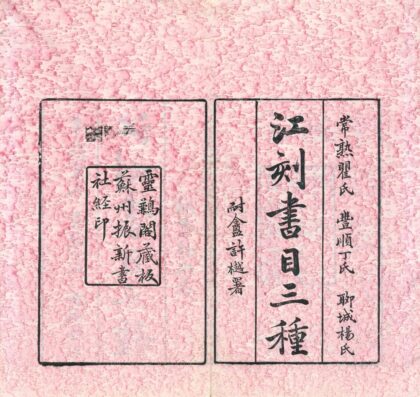 常熟瞿氏 豐順丁氏 聊城楊氏
江刻書目三種
耐盦許樾署
靈鶼閣藏板
蘇州振新書
社經印